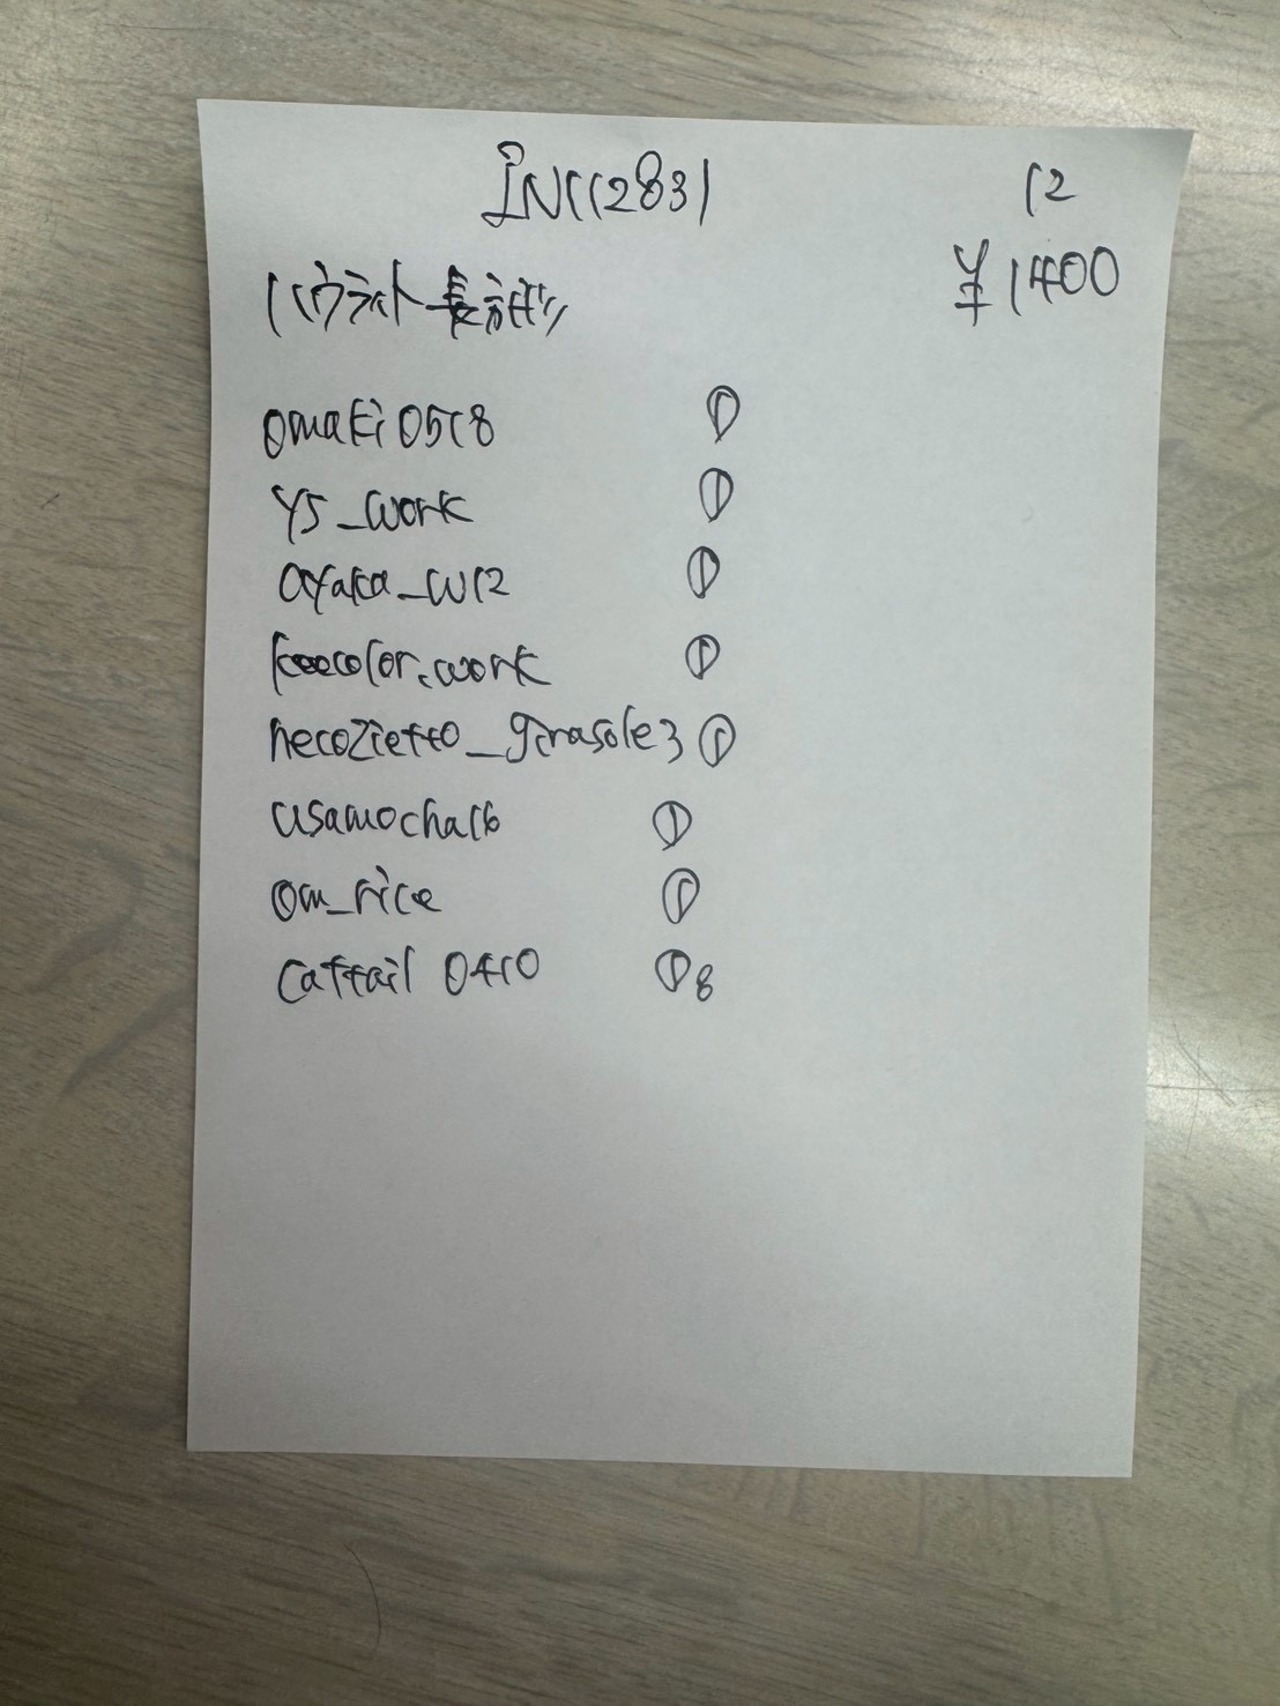 INC12831 12
¥1400
omaki0518 ①
YS_work ①
ayaka_w12 ①
keecolor.work ①
necozietto_girasole3 ①
usamocha16 ①
om_rice ①
cattail 0410 ① 8